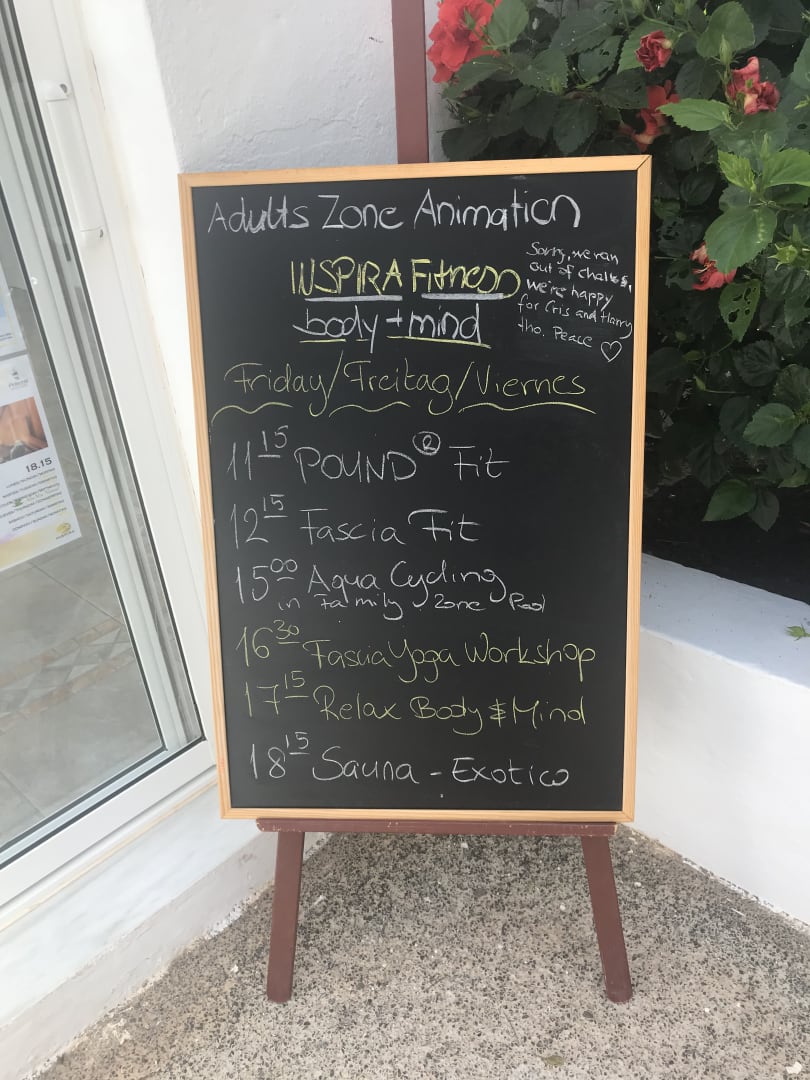 Adults Zone Animation
INSPIRA Fitness
body + mind
Sorry, we ran
out of chalks,
we're happy
for Cris and Harry
tho. Peace ♡
Friday/Freitag/Viernes
11 15 POUND® Fit
12 15 Fascia Fit
15 00 Aqua Cycling
in Family Zone Pool
16 30 Fascia Yoga Workshop
17 15 Relax Body & Mind
18 15 Sauna - Exotico
18.15